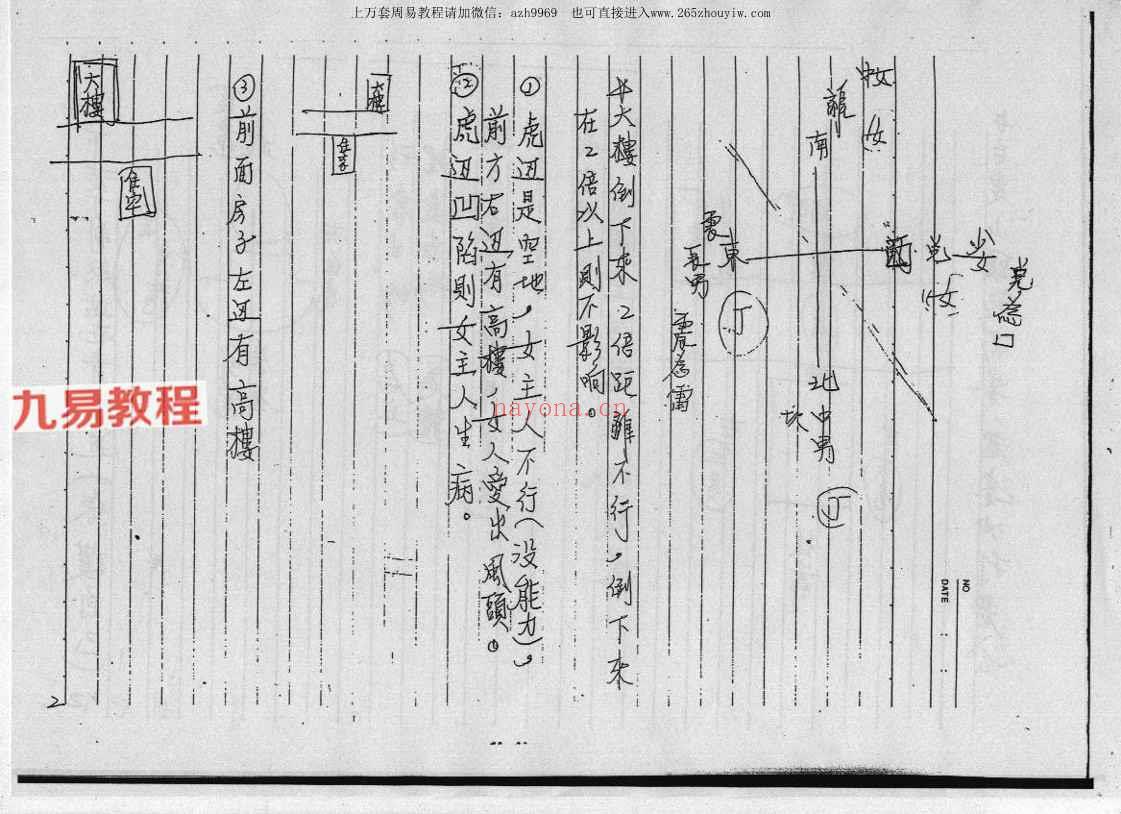 上万套周易教程请加微信：azh9969　也可直接进入www.265zhouyiw.com
NO
DATE : :
兌為口
少女
兌
女
中女
女
離
南
北
中男
坎
丁
東
震
長男
丁
震為雷
大樓倒下來2倍距離不行，倒下來
在2倍以上則不影响。
① 虎边是空地，女主人不行(没能力)，
前方右边有高樓，女人愛出風頭。
② 虎边凹陷則女主人生病。
大樓
住宅
③ 前面房子左边有高樓
大樓
住宅
2
九易教程
nayona.cn